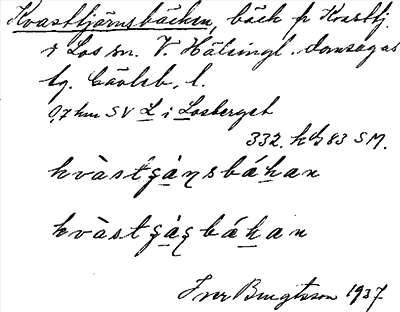 Kvasttjärnsbäcken, bäck fr Kvasttj.
i Los sn. V. Hälsingl. domsagas
tg. Gävleb. l.
0,7 km SV L i Losberget
332. hg 83 SM.
kvàstgánsbáhan
kvàstgágbákan
Iver Bengtsson 1937